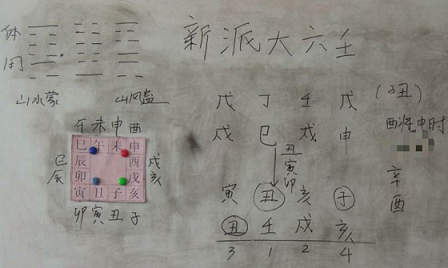 新派大六壬
体
用
山水蒙 山风蛊
午未申酉
巳午未申
巳辰
辰 酉
卯 戌
寅丑子亥
戌亥
卯寅丑子
戊 丁 壬 戊 (丑)
戌 巳 戌 申 酉将申时
丑寅卯
辛酉
寅 丑 亥 子
丑 壬 戌 亥
3 1 2 4